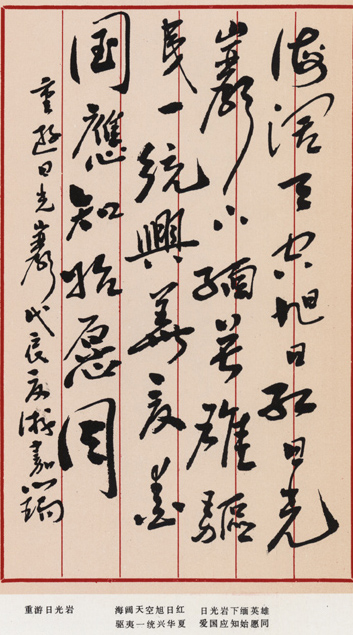 海阔天空旭日红日光
巖下缅英雄驅
夷一統興華夏爱
国應知始愿同
重遊日光巖戊辰夏
重游日光岩
海阔天空旭日红 日光岩下缅英雄
驱夷一统兴华夏 爱国应知始愿同